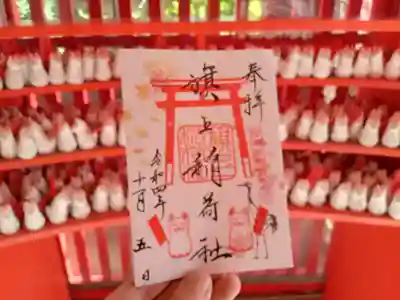 奉拝
旗上稲荷社
令和四年
十一月五日